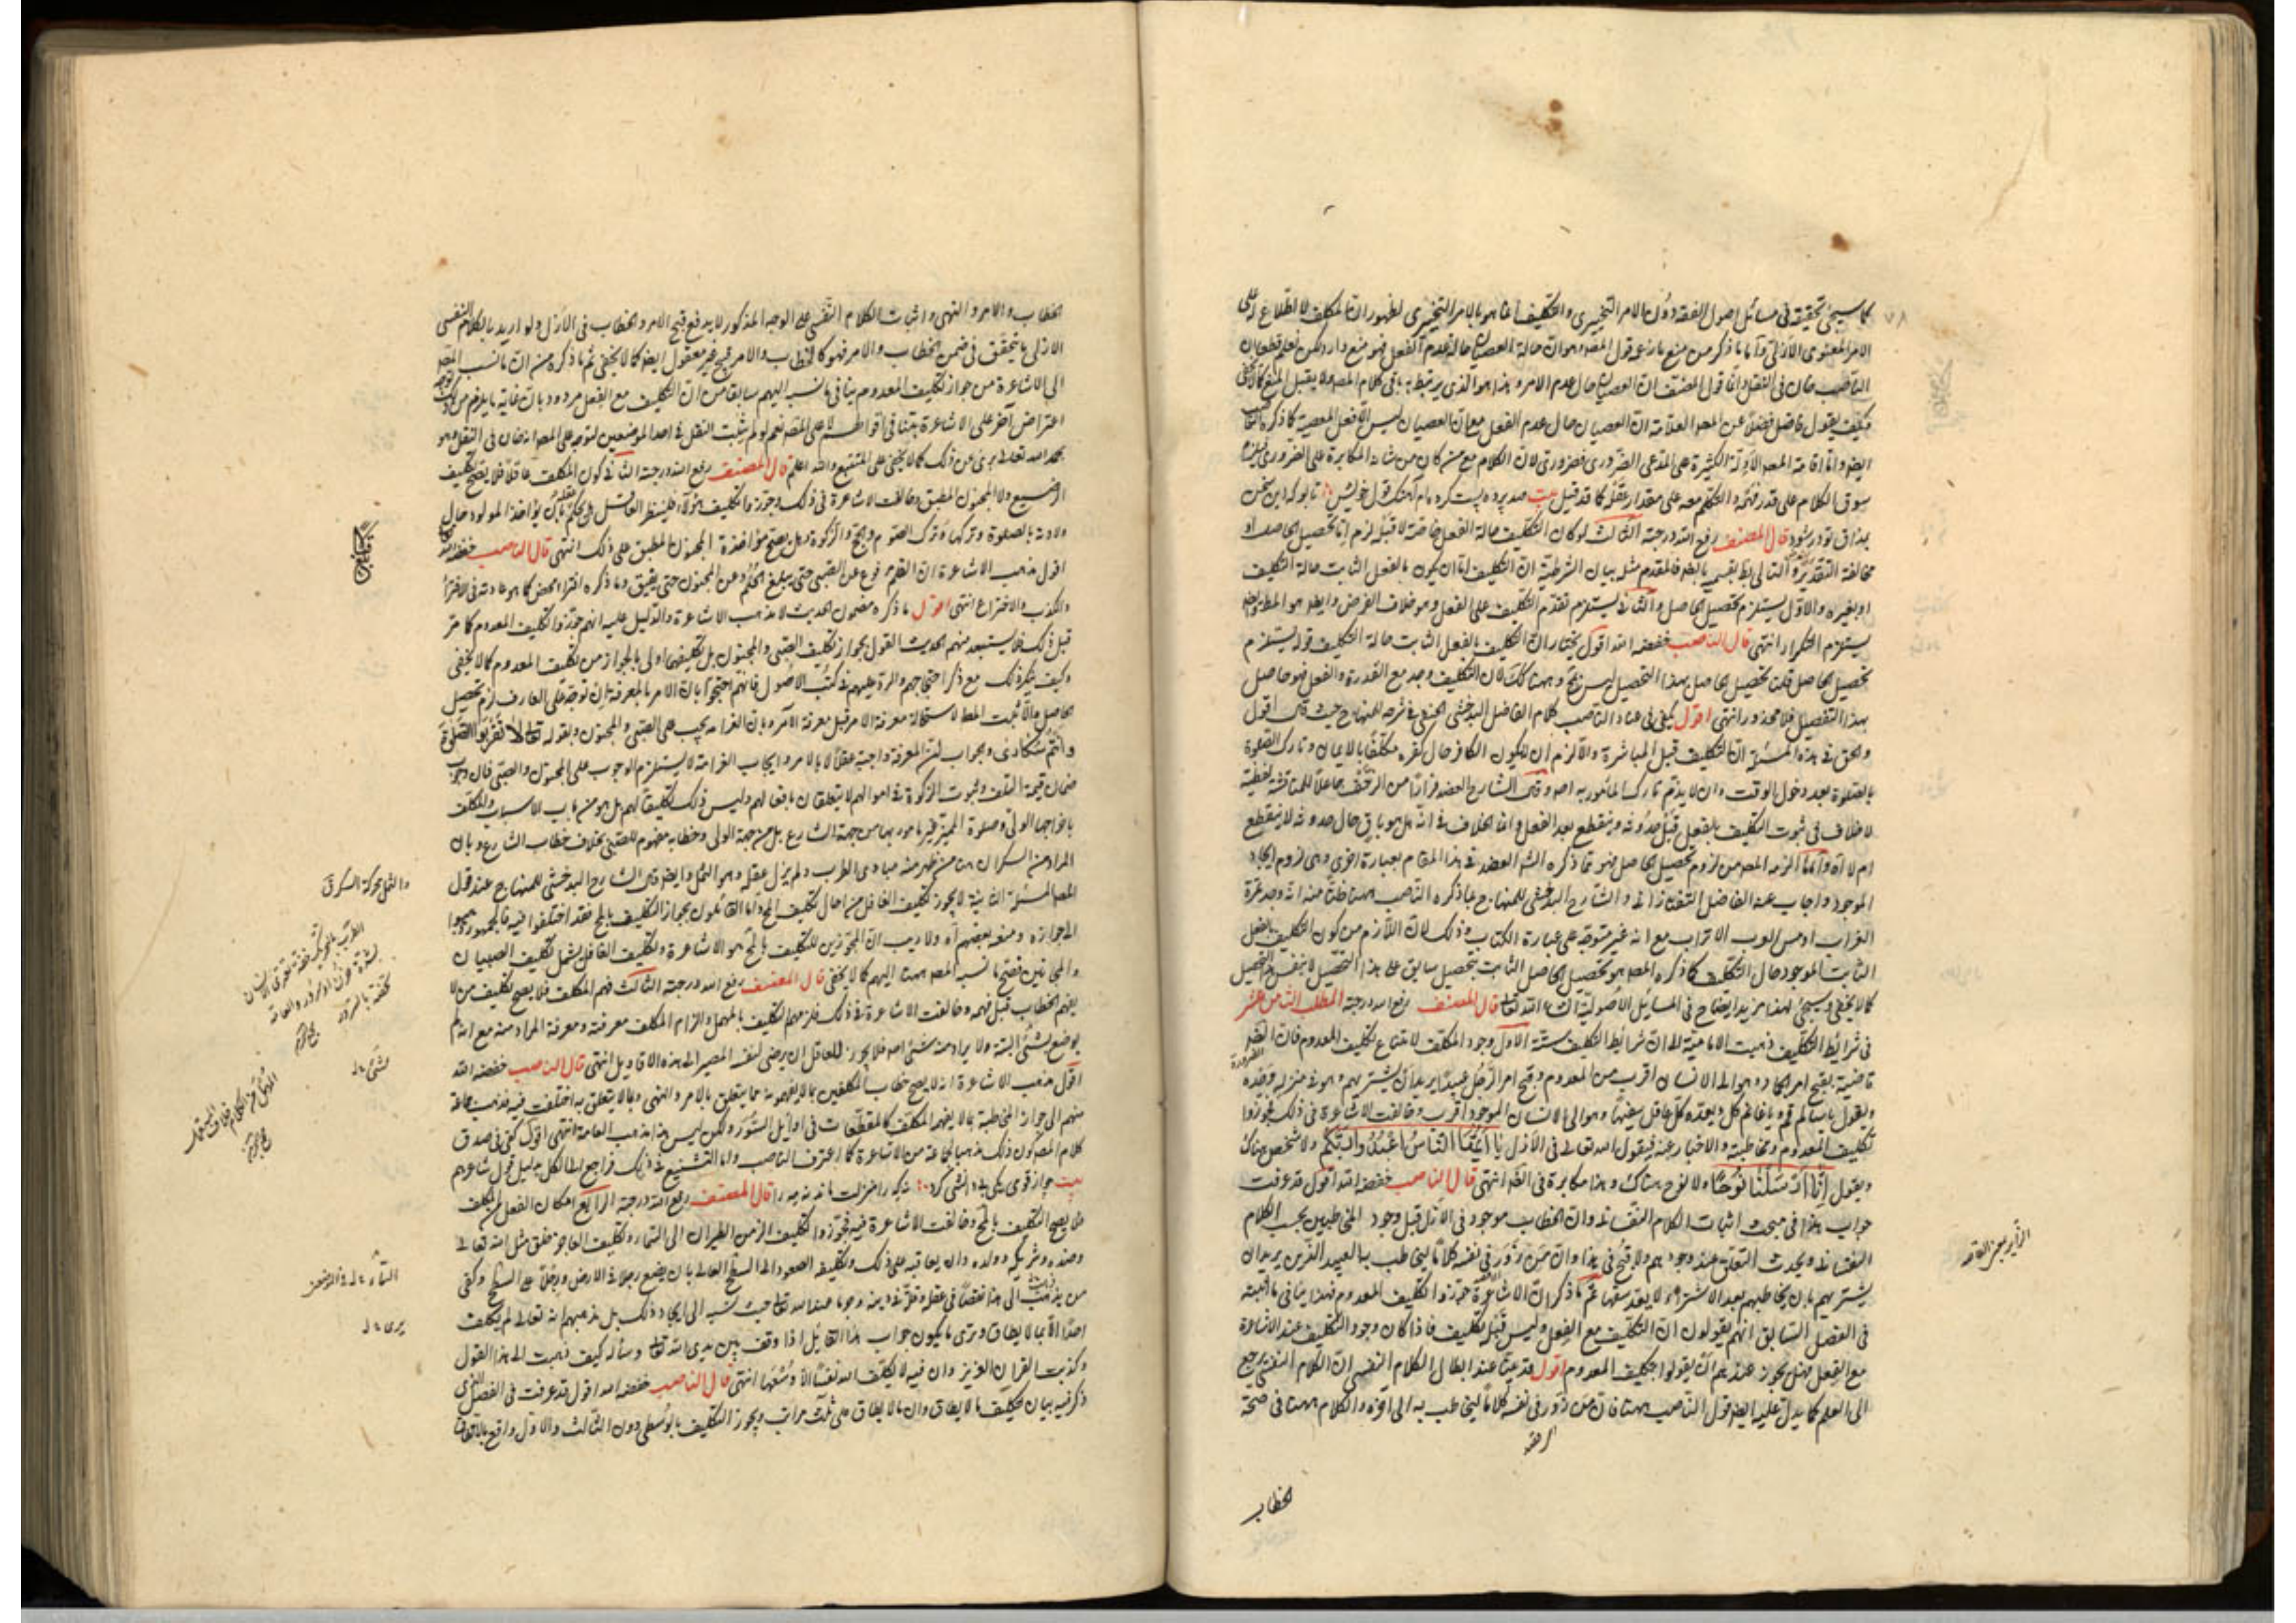 كما سيجئ تحقيقه في مسائل اصول الفقه دون الامر التخييرى والتكليف انما هو بالامر التخييرى لظهور ان المكلف لا اطلاع له على
الناصب خان في النقل واما قول المصنف ان العصيان حال عدم الامر وهذا هو الذي يرتبط به باقى كلام المصه ولا يقبل المنع
فكيف يقول فاضل فضلا عن المصه العلامة ان العصيان حال عدم الفعل مع ان العصيان ليس الا فعل المعصية كما ذكره
ايضه واما اقامة المصه الادلة الكثيرة على المدعى الضرورى فضرورى لان الكلام مع من كان من شانه المكابرة على الضرورى
سوق الكلام على قدر فهمه والتكلم معه على مقدار عقله كما قد قيل بيت
قال المصنف رفع الله درجته الثالث لو كان التكليف حالة الفعل خاصة لا قبله لزم اما تحصيل الحاصل او
مخالفة التقدير والتالى بط بقسميه بالضه فالمقدم مثله بيان الشرطية ان التكليف اما ان يكون بالفعل الثابت حالة التكليف
او بغيره والاول يستلزم تحصيل الحاصل والثانى يستلزم تقدم التكليف على الفعل وهو خلاف الفرض وايضه هو المط وايضه
يستلزم التكرار انتهى قال الناصب خفضه الله اقول نختار ان التكليف بالفعل الثابت حالة التكليف قوله يستلزم
تحصيل الحاصل قلنا تحصيل الحاصل بهذا التحصيل ليس بمح وههنا كك لان التكليف وجد مع القدرة والفعل فهو حاصل
بهذا التحصيل فلا محذور انتهى اقول يكفى في عناد الناصب كلام الفاضل البدخشى الحنفى في شرحه للمنهاج حيث قال اقول
والحق في هذه المسئلة ان التكليف قبل المباشرة والا لزم ان لا يكون الكافر حال كفره مكلفا بالايمان وتارك الصلوة
بالصلوة بعد دخول الوقت وان لا يذم تارك المأمور به اصه وقال الشارح العضد فرارا من
لا خلاف في ثبوت التكليف بالفعل قبل حدوثه وينقطع بعد الفعل وانما الخلاف في انه هل هو باق حال حدوثه لا ينقطع
ام لا اه واما ما الزمه المصه من لزوم تحصيل الحاصل فهو مما ذكره الشه العضد في هذا المقام بعبارة اخرى وهى لزوم ايجاد
الموجود واجاب عنه الفاضل التفتازانى والشارح البدخشى للمنهاج بما ذكره الناصب ههنا ظنا منه انه وجد تمرة
الغراب او مس الوب الاتراب مع انه غير متوجه على عبارة الكتاب وذلك لان اللازم من كون التكليف بالفعل
الثابت الموجود حال التكليف كما ذكره المصه هو تحصيل الحاصل الثابت بتحصيل سابق على هذا التحصيل لا بنفس التحصيل
كما لا يخفى وسيجئ لهذا مزيد ايضاح في المسائل الاصولية ان شاء الله تعالى قال المصنف رفع الله درجته المطلب الثامن عشر
في شرائط التكليف ذهبت الامامية الى ان شرائط التكليف ستة الاول وجود المكلف لامتناع تكليف المعدوم فان الضرورة
قاضية بقبح امر الجماد وهو الى الانسان اقرب من المعدوم وقبح امر الرجل عبيدا يريد ان يشتريهم وهو في منزله وحده
ويقول يا سالم قم ويا غانم كل ويعده كل عاقل سفيها وهو الى الانسان الموجود اقرب وخالفت الاشاعرة في ذلك فجوزوا
تكليف المعدوم ومخاطبته والاخبار عنه فيقول الله تعالى في الازل يا ايها الناس اعبدوا ربكم ولا شخص هناك
ويقول انا ارسلنا نوحا ولا نوح هناك وهذا مكابرة في الضه انتهى قال الناصب خفضه الله اقول قد عرفت
جواب هذا في مبحث اثبات الكلام النفسانى وان الخطاب موجود في الازل قبل وجود المخاطبين بحسب الكلام
النفسانى ويحدث التعلق عند وجودهم ولا قبح في هذا وان من زور في نفسه كلاما ليخاطب به العبيد الذين يريد ان
يشتريهم بان يخاطبهم بعد الاشتراء لا يعد سفها ثم ما ذكر ان الاشاعرة جوزوا تكليف المعدوم فهذا ينافى ما اثبته
في الفصل السابق انهم يقولون ان التكليف مع الفعل وليس قبله تكليف فاذا كان وجود التكليف عند الاشاعرة
مع الفعل فهل يجوز عندهم ان يقولوا بتكليف المعدوم اقول قد بينا عند ابطال الكلام النفسى ان الكلام النفسى يرجع
الى العلم كما يدل عليه ايضه قول الناصب ههنا فان من زور في نفسه كلاما ليخاطب به الى اخره والكلام ههنا في صحة
الخطاب
الخطاب والامر والنهى واثبات الكلام النفسى على الوجه المذكور لا يدفع قبح الامر والخطاب في الازل ولو اريد بالكلام النفسى
الازلى ما تحقق في ضمن الخطاب والامر فهو كالخطاب والامر قبيح غير معقول ايضه كما لا يخفى ثم ما ذكره من ان ما نسبه المصه
الى الاشاعرة من جواز تكليف المعدوم ينافى ما نسبه اليهم سابقا من ان التكليف مع الفعل مردود بان غاية ما يلزم من ذلك
اعتراض آخر على الاشاعرة بتنافى اقوالهم لا على المصه نعم لو لم يثبت النقل في احد الموضعين لتوجه على المصه انه خان في النقل وهو
بحمد الله تعالى برئ عن ذلك كما لا يخفى على المتتبع والله اعلم قال المصنف رفع الله درجته الثانى كون المكلف عاقلا فلا يصح تكليف
الرضيع ولا المجنون المطبق وخالفت الاشاعرة في ذلك وجوزوا تكليف هؤلاء فلينظر العاقل هل يحكم عقله بان يؤاخذ المولود حال
ولادته بالصلوة وتركها وترك الصوم والحج والزكوة وهل يصح مؤاخذة المجنون المطبق على ذلك انتهى قال الناصب خفضه الله
اقول مذهب الاشاعرة ان القلم مرفوع عن الصبى حتى يبلغ الحلم وعن المجنون حتى يفيق وما ذكره افتراء محض كما هو عادته في الافتراء
والكذب والاختراع انتهى اقول ما ذكره مضمون الحديث لا مذهب الاشاعرة والدليل عليه انهم جوزوا تكليف المعدوم كما مر
قبل ذلك فلا يستبعد منهم الحديث القول بجواز تكليف الصبى والمجنون بل تكليفهما اولى بالجواز من تكليف المعدوم كما لا يخفى
وكيف ينكر ذلك مع ذكر احتجاجهم والرد عليهم في كتب الاصول فانهم احتجوا بان الامر بالمعرفة ان توجه على العارف لزم تحصيل
الحاصل والا ثبت المط لاستحالة معرفة الامر قبل معرفة الآمر وبان الغرامة يجب على الصبى والمجنون وبقوله تعالى لا تقربوا الصلوة
وانتم سكارى والجواب ان المعرفة واجبة عقلا لا بالامر وايجاب الغرامة لا يستلزم الوجوب على المجنون والصبى فان وجوب
ضمان قيمة المتلف وثبوت الزكوة في اموالهم لا يتعلقان بافعالهم وليس ذلك تكليفا لهم بل هو من باب الاسباب والمكلف
باخراجها الولى وصلوة المميز غير مأمور بها من جهة الشارع بل من جهة الولى وخطابه مفهوم للصبى بخلاف خطاب الشارع وبان
المراد من السكران هنا من ظهر منه مبادى الطرب ولم يزل عقله وهو الثمل وايضه قال الشارح البدخشى للمنهاج عند قول
المصه المسئلة الثانية لا يجوز تكليف الغافل من احال تكليف المح واما القائلون بجواز التكليف بالمح فقد اختلفوا فيه فالجمهور ذهبوا
الى جوازه ومنعه بعضهم اه ولا ريب ان المجوزين للتكليف بالمح هو الاشاعرة وتكليف الغافل يشمل تكليف الصبيان
والمجانين فصح ما نسبه المصه ههنا اليهم كما لا يخفى قال المصنف رفع الله درجته الثالث فهم المكلف فلا يصح تكليف من لا
يفهم الخطاب قبل فهمه وخالفت الاشاعرة في ذلك فلزمهم التكليف بالمهمل والزام المكلف معرفته ومعرفة المراد منه مع انه لم
يوضع لشئ البتة ولا يراد منه شئ اصه فلا يجوز للعاقل ان يرضى لنفسه المصير الى هذه الاقاويل انتهى قال الناصب خفضه الله
اقول مذهب الاشاعرة انه لا يصح خطاب المكلفين بما لا يفهمونه مما يتعلق بالامر والنهى وما لا يتعلق به اختلف فيه فذهب جماعة
منهم الى جواز المخاطبة بما لا يفهم المكلف كالمقطعات في اوايل السور ولكن ليس هذا مذهب العامة انتهى اقول كفى في صدق
كلام المصه كون ذلك مذهبا لجماعة من الاشاعرة كما اعترف الناصب واما التشنيع في ذلك فراجع الى الكل بدليل قول شاعرهم
بيت چو از قومى يكى بى دانشى كرد نه كه را منزلت ماند نه مه را قال المصنف رفع الله درجته الرابع امكان الفعل الى المكلف
فلا يصح التكليف بالمح وخالفت الاشاعرة فيه فجوزوا تكليف الزمن الطيران الى السماء وتكليف العاجز خلق مثل الله تعالى
وضده وشريكه وولده وان يعاقبه على ذلك وتكليفه الصعود الى السطح العالى بان يضع رجلا في الارض ورجلا على السطح وكفى
من ذهب الى هذا نقصا في عقله وقلة في دينه وجرءة عند الله تعالى حيث نسبه الى ايجاد ذلك بل مذهبهم انه تعالى لم يكلف
احدا الا بما لا يطاق وترى ما يكون جواب هذا القائل اذا وقف بين يدى الله تعالى وسأله كيف ذهبت الى هذا القول
وكذبت القران العزيز وان فيه لا يكلف الله نفسا الا وسعها انتهى قال الناصب خفضه الله اقول قد عرفت في الفصل الذى
ذكر فيه بيان تكليف ما لا يطاق وان ما لا يطاق على ثلث مراتب ويجوز التكليف بالوسطى دون الثالث والاول واقع بالاتفاق